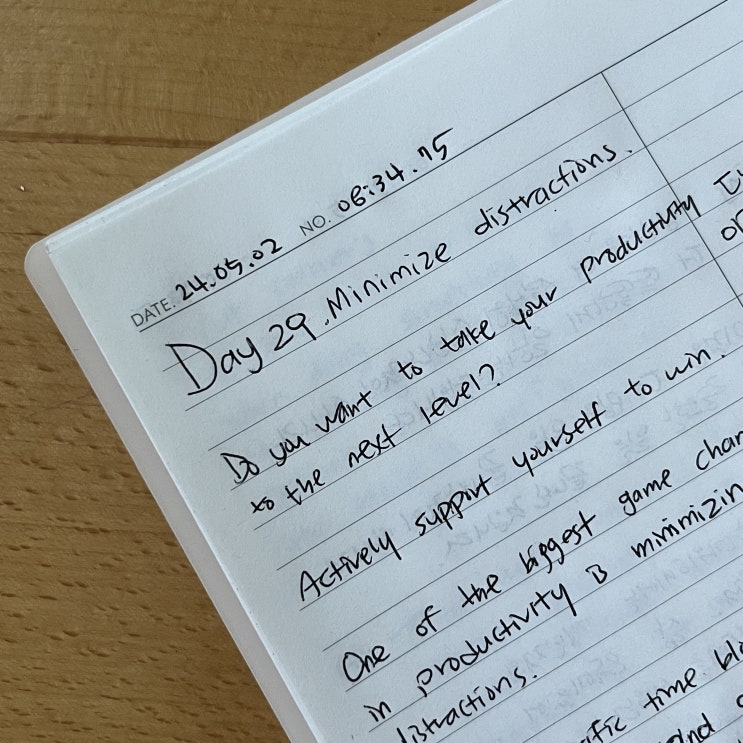 DATE. 24.05.02 NO. 06:34.75
Day 29. Minimize distractions.
Do you want to take your productivity
to the next level?
Actively support yourself to win.
One of the biggest game
in productivity is
distractions.
time